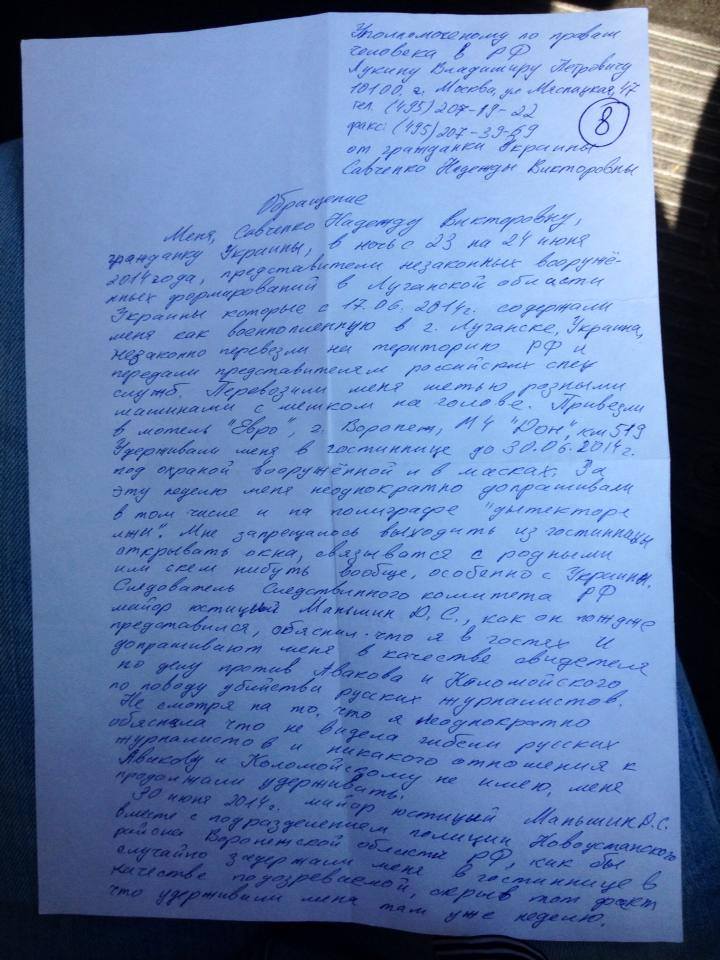 Уполпомоченому по правам
человека в РФ
Лукину Владимиру Петровичу
10100. г. Москва, ул Мяспацкая, 47
тел. (495) 207-19-22
факс: (495) 207-39-69
8
от гражданки Украины
Савченко Надежды Викторовны
Обращение
Меня, Савченко Надежду Викторовну,
гражданку Украины, в ночь с 23 на 24 июня
2014 года, представители незаконных вооружё-
нных формирований в Луганской области
Украины которые с 17.06.2014г. содержали
меня как военнопленную в г. Луганске, Украина,
незаконно перевезли на територию РФ и
передали представителям российских спец
служб. Перевозили меня шетью разными
машинами с мешком на голове. Привезли
в мотель "Евро", г. Воронеж, М4 "Дон", км 519
Удерживали меня в гостиннице до 30.06.2014г.
под охраной вооружённой и в масках. За
эту неделю меня неоднократно допрашивали
в том числе и на полиграфе "дытекторе
лжи". Мне запрещалось выходить из гостинницы
открывать окна, связыватся с родными
или с кем нибуть вообще, особенно с Украины.
Следователь Следствинного комитета РФ
майор юстицыи Маньшин Д.С., как он позднее
представился, обяснил что я в гостях и
допрашивают меня в качестве свидетеля
по делу против Авакова и Коломойского
по поводу убийства русских журналистов.
Не смотря на то, что я неоднократно
обяснила что не видела гибели русских
журналистов и никакого отношения к
Авакову и Коломойскому не имею, меня
продолжали удерживать.
30 июня 2014г. майор юстицый Маньшин Д.С.
вместе с подразделением полиции Новоусманского
района Воронежской области РФ, как бы
случайно задержали меня в гостиннице в
качестве подозреваемой, скрыв тот факт
что удерживали меня там уже неделю.